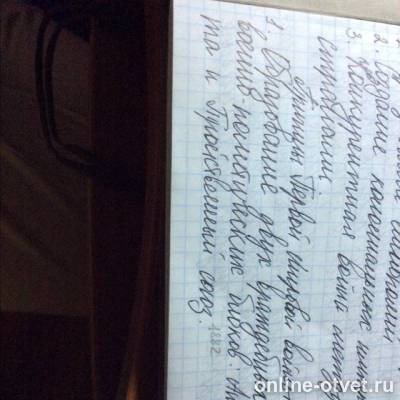 2. Создание колониальных
3. Конкурентная война между
странами.
Причины Первой мировой войны
1. Образование двух враждебных
военно-политических блоков.
та и Тройственный союз. 1882
online-otvet.ru